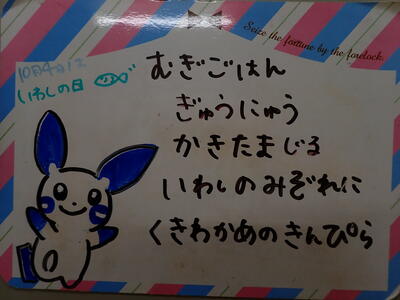 Seize the fortune by the forelock.
10月4日は
いわしの日
むぎごはん
ぎゅうにゅう
かきたまじる
いわしのみぞれに
くきわかめのきんぴら